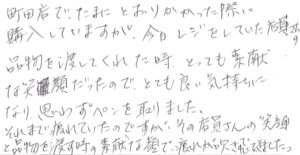 町田店で、たまにとおりかかった際に
購入していますが、今日レジをしていた店員さんが
品物を渡してくれた時、とっても素献
な笑顔だったので、とても良い気持ちに
なり、思わずペンを取りました。
それまで疲れていたのですが、その店員さんの"笑顔
と品物を渡す時の素献な顔で、疲れが吹き飛びました。